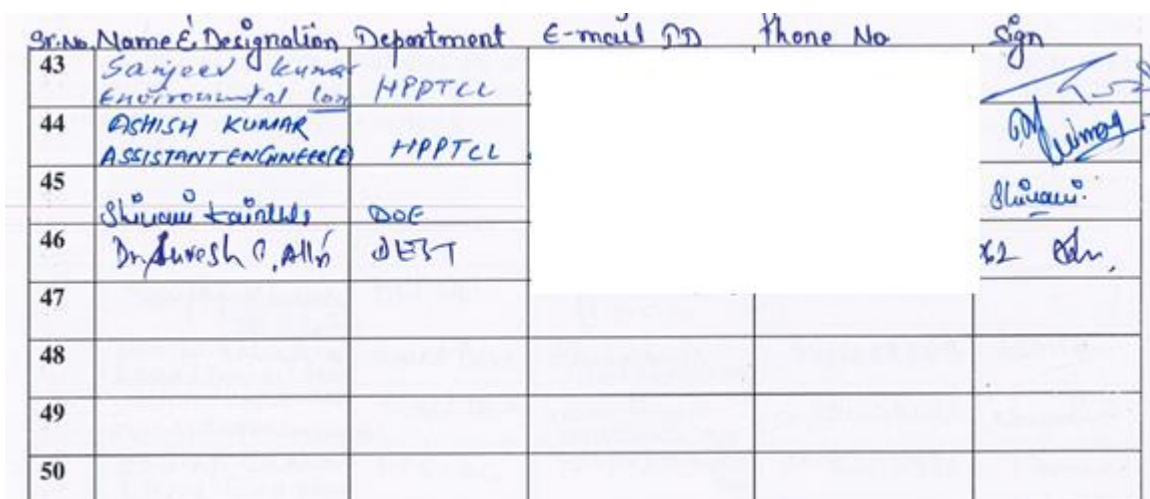 Sr.No. Name & Designation Department E-mail ID Phone No Sign
43 Sanjeev Kumar HPPTCL
Environmental Con
44 ASHISH KUMAR
ASSISTANT ENGINEER(E) HPPTCL Kumar
45
Shivani Kainthla DOE Shivani
46 Dr. Suresh C. Attri DEST 62
47
48
49
50